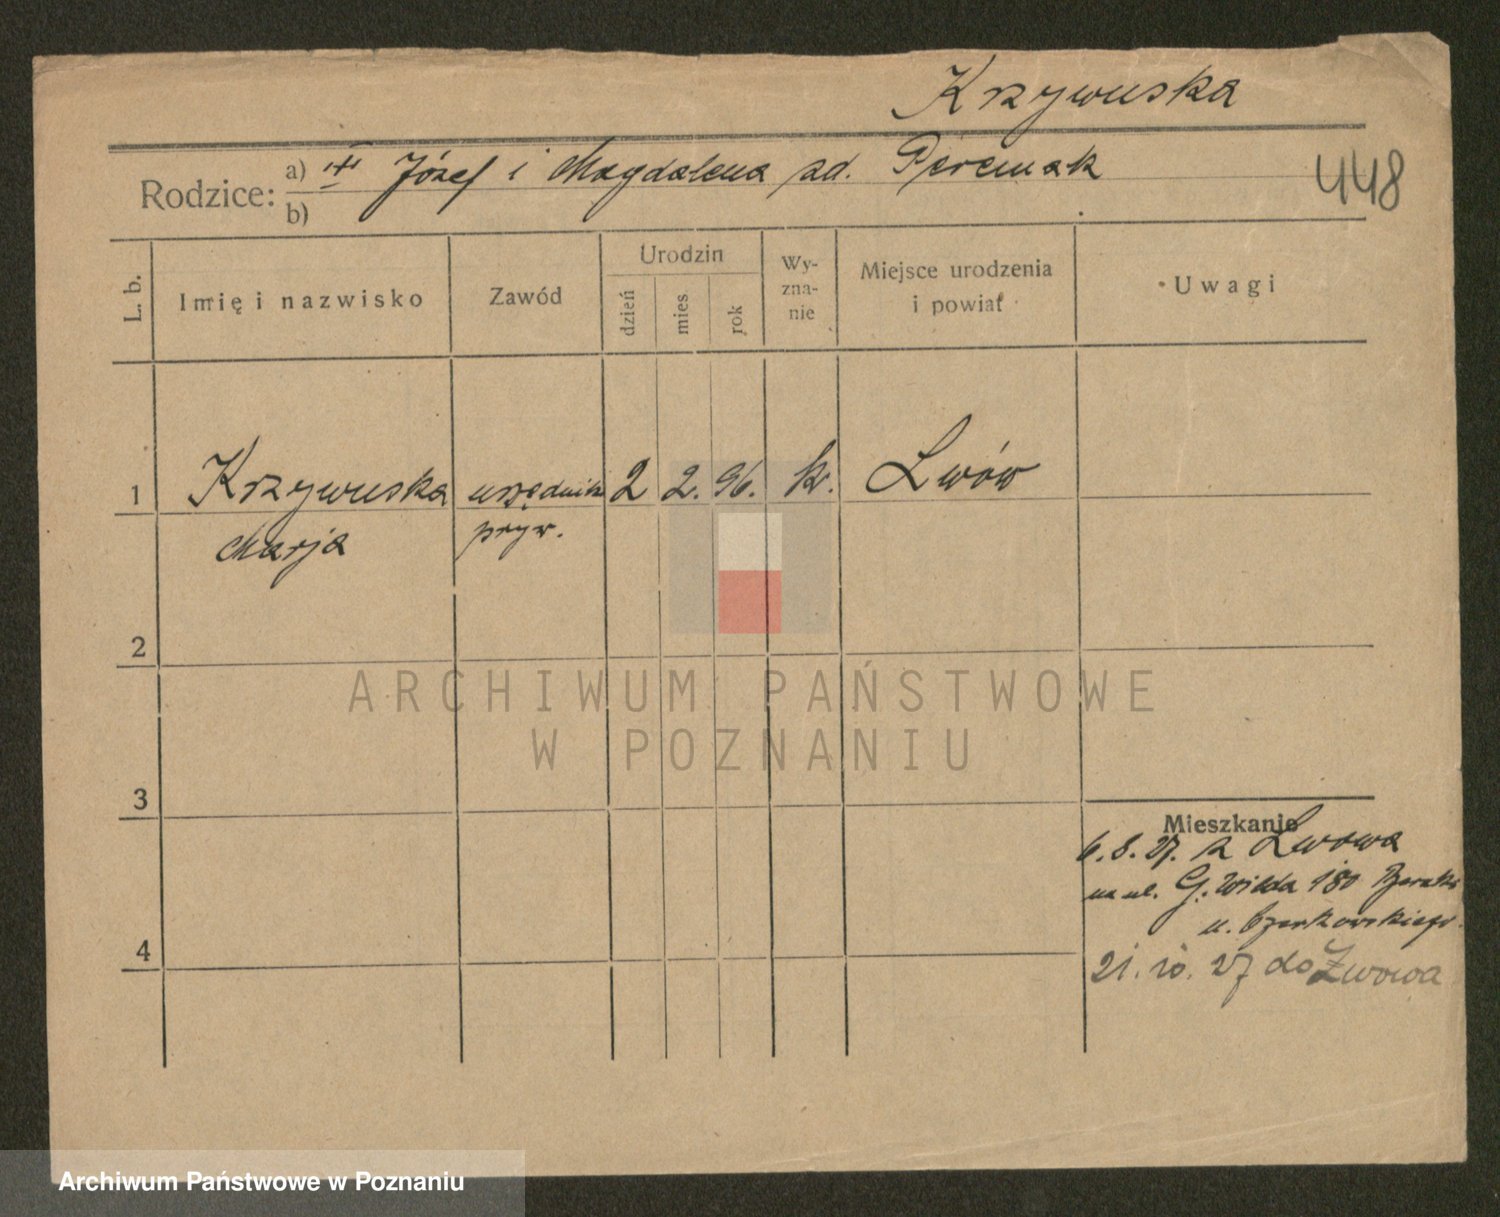 Krzywuska
Rodzice: a) Józef i Magdalena zd. Peremak
b)
448
L. b.
Imię i nazwisko
Zawód
Urodzin
dzień
mies
rok
Wy-
zna-
nie
Miejsce urodzenia
i powiat
Uwagi
1 Krzywuska urzędnik 2 2. 96. k. Lwów
Marja pryw.
2
3
4
Mieszkanie
6. 8. 27. z Lwowa
na ul. G. Wilda 180
u. Czerkowskiego
21. 10. 27 do Lwowa
ARCHIWUM PAŃSTWOWE
W POZNANIU
Archiwum Państwowe w Poznaniu